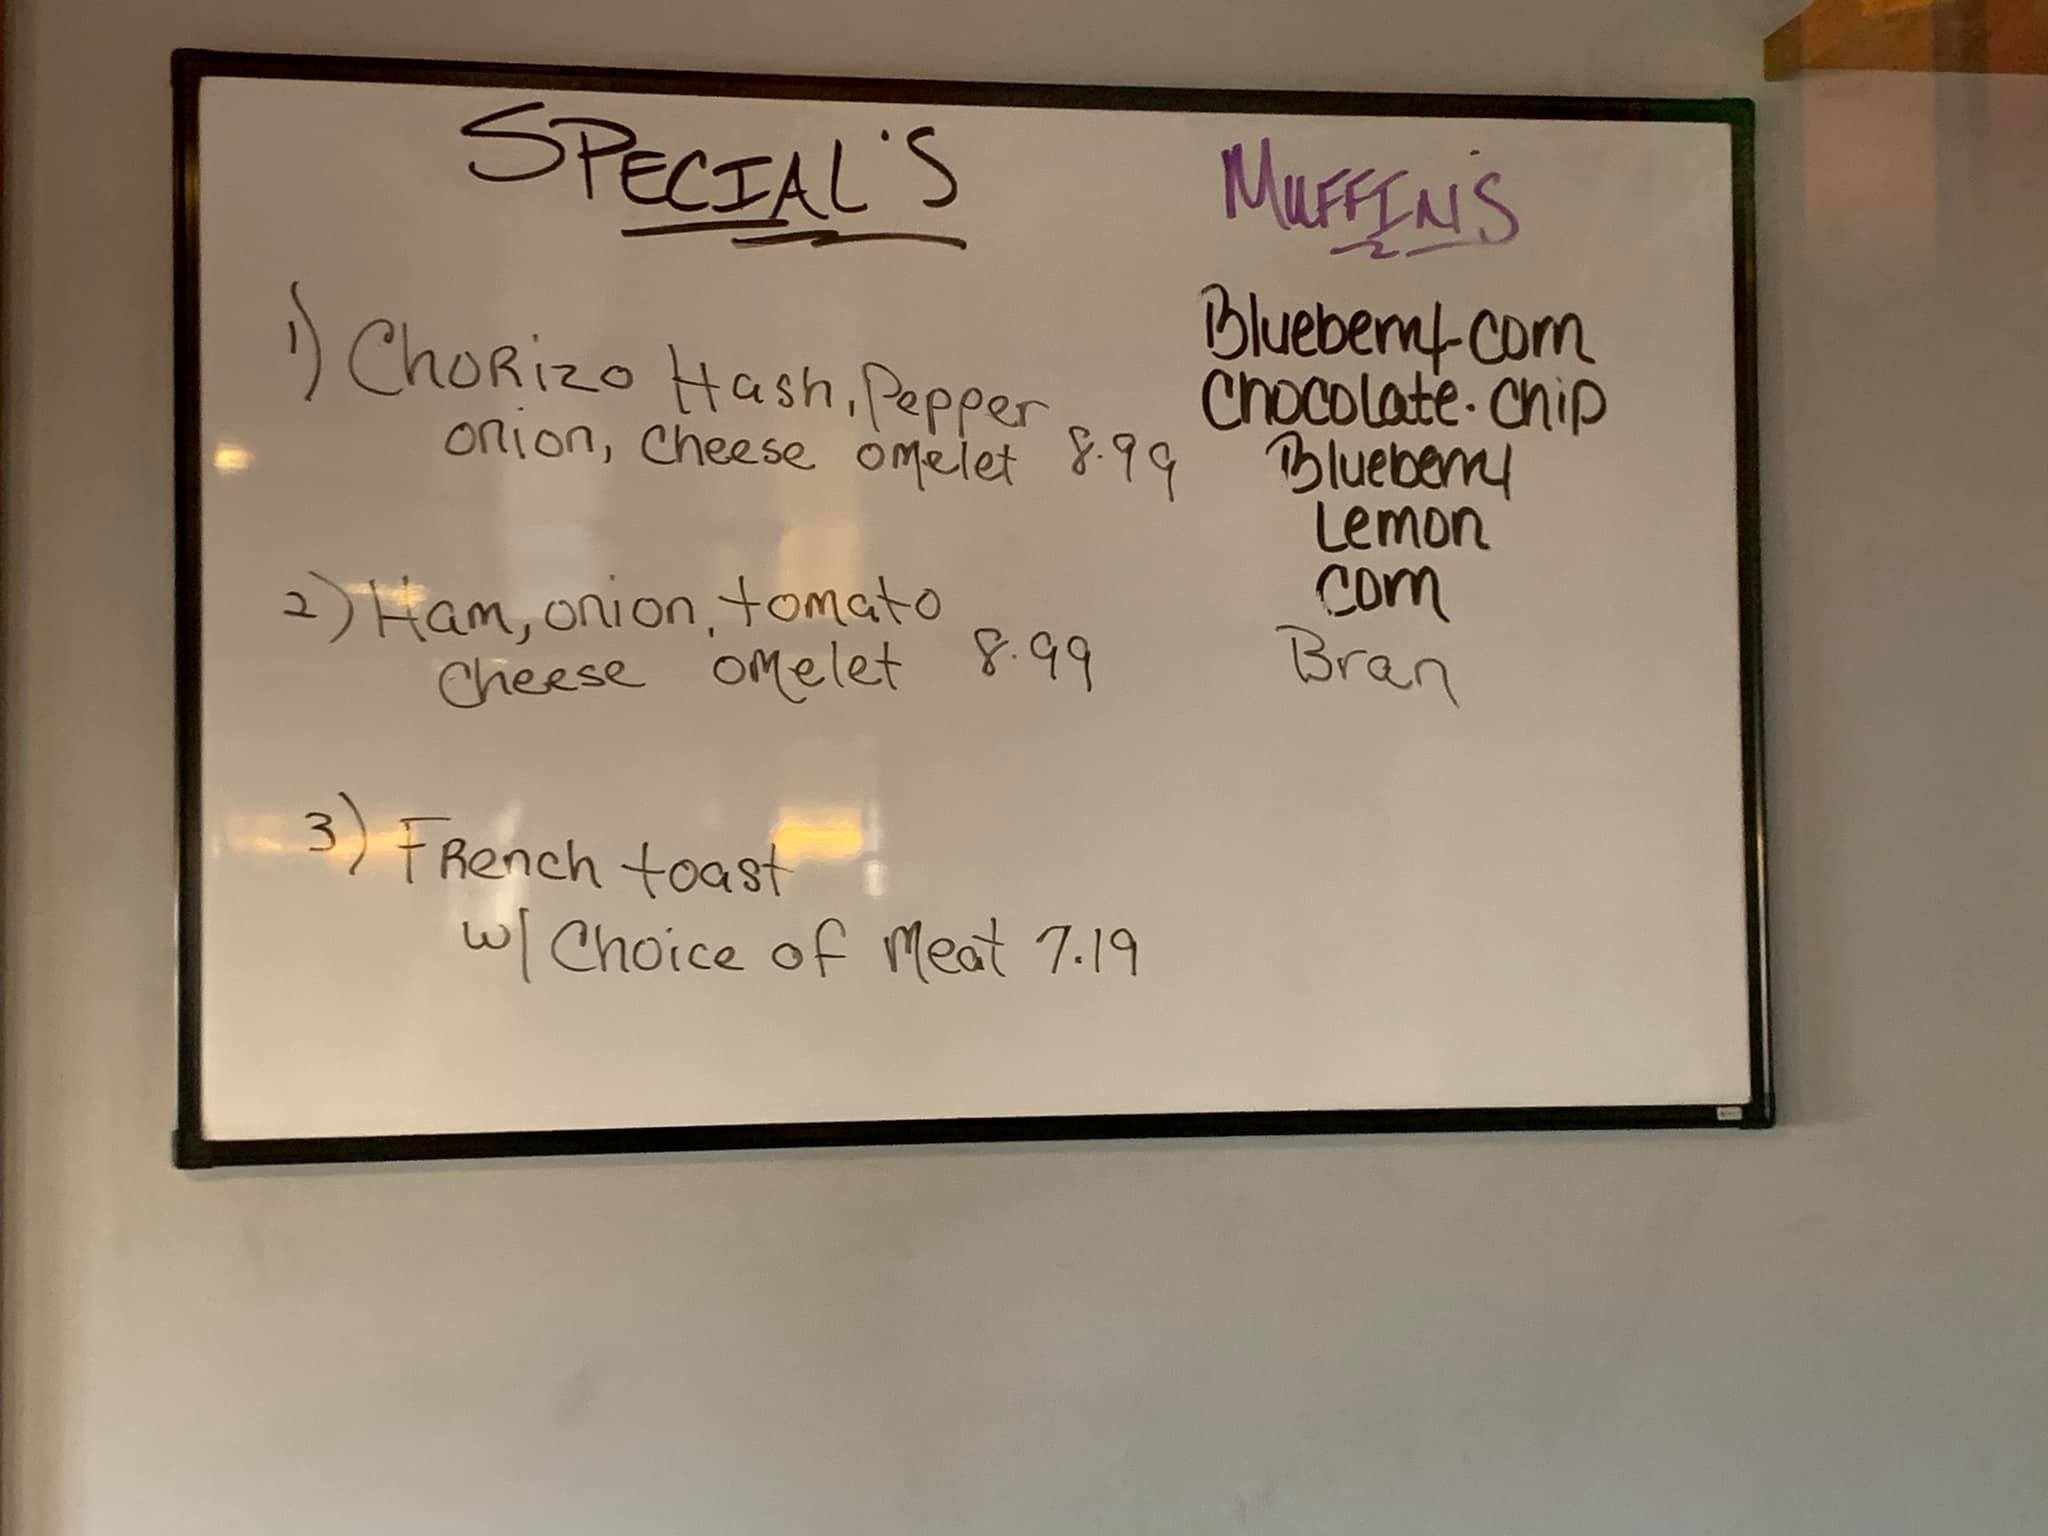 SPECIAL'S
1) Chorizo Hash, Pepper
onion, cheese omelet 8.99
2) Ham, onion, tomato
cheese omelet 8.99
3) French toast
w/ Choice of Meat 7.19
MUFFIN'S
Blueberry-corn
Chocolate-chip
Blueberry
Lemon
corn
Bran